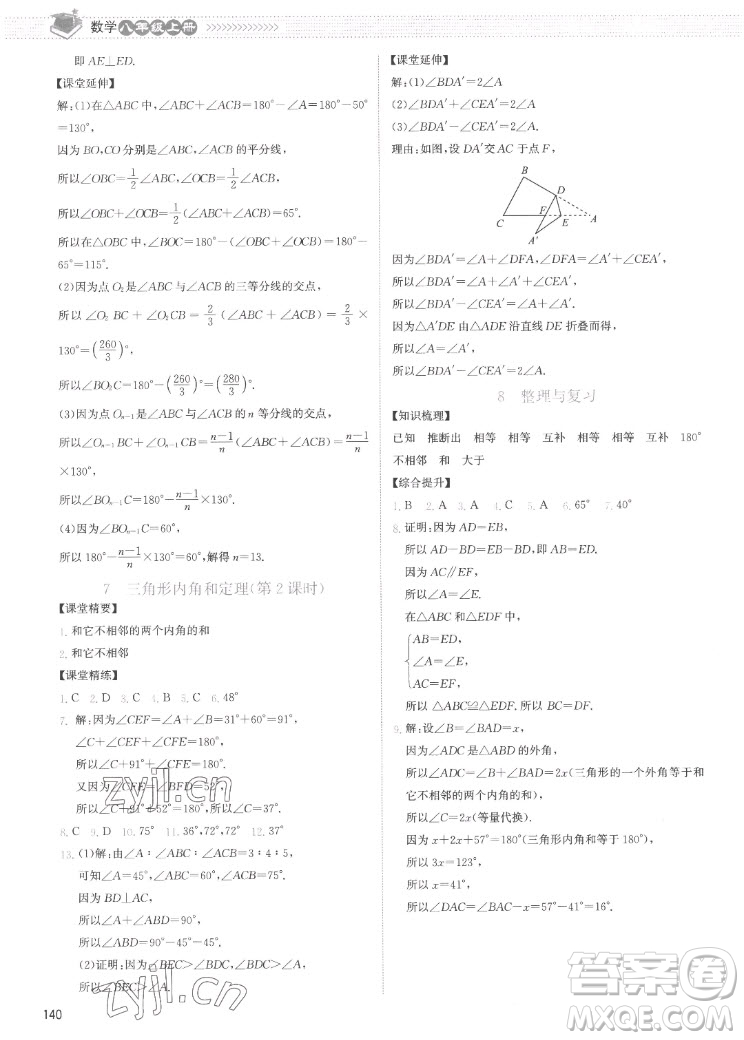 数学八年级上册
即 AE⊥ED.
【课堂延伸】
解:(1)在△ABC 中,∠ABC+∠ACB=180°-∠A=180°-50°
=130°,
因为 BO,CO 分别是∠ABC 与∠ACB 的平分线,
所以∠OBC=1/2∠ABC,∠OCB=1/2∠ACB,
所以∠OBC+∠OCB=1/2(∠ABC+∠ACB)=65°.
所以在△OBC 中,∠BOC=180°-(∠OBC+∠OCB)=180°-
65°=115°.
(2)因为点 O₂是∠ABC 与∠ACB 的三等分线的交点,
所以∠O₂BC+∠O₂CB=2/3(∠ABC+∠ACB)=2/3×
130°=(260/3)°,
所以∠BO₂C=180°-(260/3)°=(280/3)°.
(3)因为点 Oₙ₋₁是∠ABC 与∠ACB 的 n 等分线的交点,
所以∠Oₙ₋₁BC+∠Oₙ₋₁CB=n-1/n(∠ABC+∠ACB)=n-1/n
×130°,
所以∠BOₙ₋₁C=180°-n-1/n×130°.
(4)因为∠BOₙ₋₁C=60°,
所以 180°-n-1/n×130°=60°,解得 n=13.
7 三角形内角和定理(第 2 课时)
【课堂精要】
1. 和它不相邻的两个内角的和
2. 和它不相邻
【课堂精练】
1. C 2. B 3. D 4. B 5. C 6. 48°
7. 解:因为∠CEF=∠A+∠B=31°+60°=91°,
∠C+∠CEF+∠CFE=180°,
所以∠C+91°+∠CFE=180°.
又因为∠CFE=∠BFD=52°,
所以∠C+91°+52°=180°.
所以∠C=37°.
8. C 9. D 10. 75° 11. 36°,72°,72° 12. 60°
13. (1)解:由∠A∶∠ABC∶∠ACB=3∶4∶5,
可知∠A=45°,∠ABC=60°.
因为 BD⊥AC,
所以∠A+∠ABD=90°,
所以∠ABD=90°-45°=45°.
(2)证明:因为∠BEC>∠BDC,∠BDC>∠A,
所以∠BEC>∠A.
140
【课堂延伸】
解:(1)∠BDA′=2∠A
(2)∠BDA′+∠CEA′=2∠A
(3)∠BDA′-∠CEA′=2∠A.
理由:如图,设 DA′交 AC 于点 F,
B
D
C
F
E
A
A′
因为∠BDA′=∠A+∠DFA,∠DFA=∠A′+∠CEA′,
所以∠BDA′=∠A+∠A′+∠CEA′.
所以∠BDA′-∠CEA′=∠A+∠A′.
因为△A′DE 由△ADE 沿直线 DE 折叠而得,
所以∠A=∠A′,
所以∠BDA′-∠CEA′=2∠A.
8 整理与复习
【知识梳理】
已知 推断出 相等 相等 互补 相等 相等 互补 180°
不相邻 和 大于
【综合提升】
1. B 2. A 3. A 4. C 5. A 6. 65° 7. 40°
8. 证明:因为 AD=EB,
所以 AD-BD=EB-BD,即 AB=ED.
因为 AC∥EF,
所以∠A=∠E,
在△ABC 和△EDF 中,
AB=ED,
∠A=∠E,
AC=EF,
所以△ABC≌△EDF. 所以 BC=DF.
9. 解:设∠B=∠BAD=x,
因为∠ADC 是△ABD 的外角,
所以∠ADC=∠B+∠BAD=2x(三角形的一个外角等于
和它不相邻的两个内角的和),
所以∠C=2x(等量代换).
因为 x+2x+57°=180°(三角形内角和等于 180°),
所以 3x=123°,
所以 x=41°,
所以∠DAC=∠BAC-∠BAD=57°-41°=16°.
zyjl.cn
zyjl.cn
答案圈